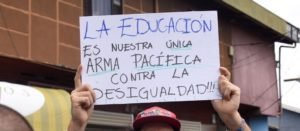 LA EDUCACIÓN
ES NUESTRA ÚNICA
ARMA PACÍFICA
CONTRA LA
DESIGUALDAD!!!